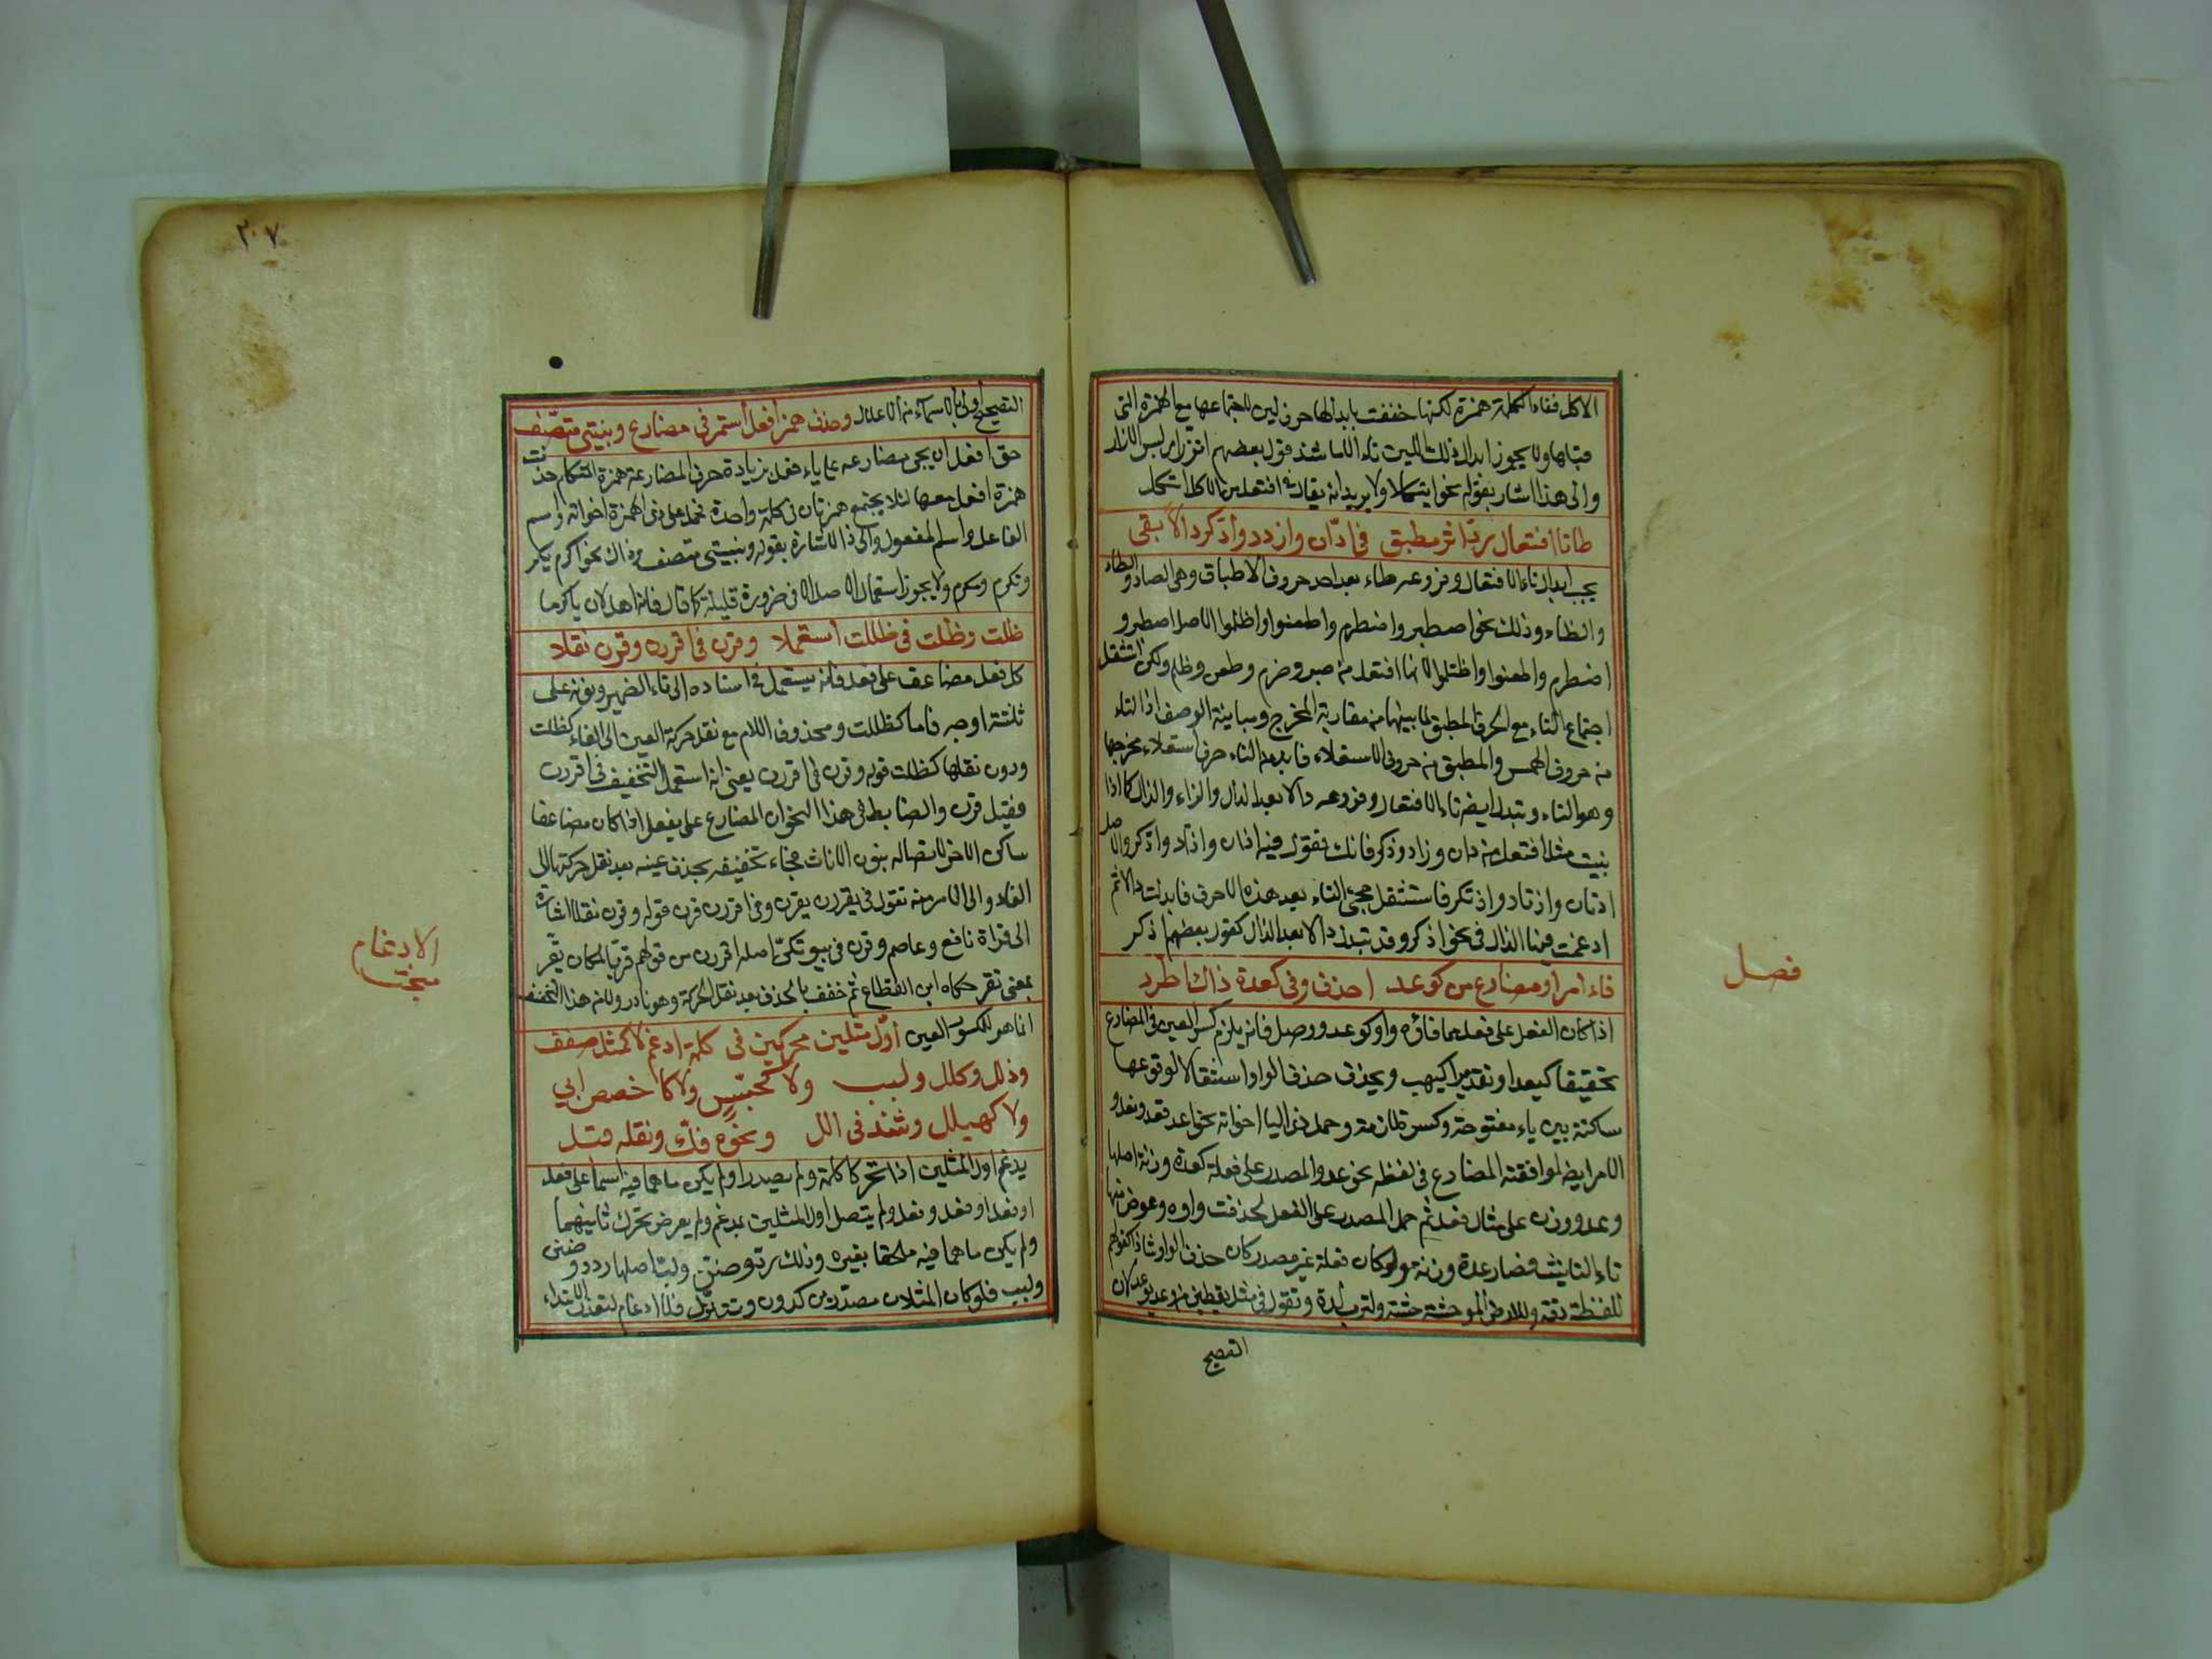 الاكل ففاء الكلمة همزة لكنها خففت بابدالها حرف لين لاجتماعها مع الهمزة التي
قبلها ولا يجوز ابدال ذلك اللين تاء الا ما شذ قول بعضهم اتزر اي لبس الازار
والى هذا اشار بقوله نحو ايتكلا ولا يريد انه يقال في افتعل من الاكل اتكل
طا تا افتعال رد اثر مطبق في ادان وازدد وادكر دالا بقى
يجب ابدال تاء الافتعال وفروعه طاء بعد احد حروف الاطباق وهي الصاد والطاء
والظاء وذلك نحو اصطبر واضطرم واطعنوا واظلموا الاصل اصطبر و
اضطرم واطعنوا واظتلموا لانها افتعل من صبر وضرم وطعن وظلم ولكن استثقل
اجتماع التاء مع الحرف المطبق لما بينهما من مقاربة المخرج ومباينة الوصف اذ التاء
من حروف الهمس والمطبق من حروف الاستعلاء فابدل من التاء حرف استعلاء مخرجها
وهو الطاء وتبدل ايضا تاء الافتعال وفروعه دالا بعد الدال والزاء والذال كما اذا
بنيت مثل افتعل من دان وزاد وذكر فانك تقول فيه ادان وازداد واذكر والاصل
ادتان وازتاد واذتكر فاستثقل مجئ التاء بعد هذه الاحرف فابدلت دالا ثم
ادغمت فيها الدال في نحو ادكر وقد تبدل دالا بعد الذال كقول بعضهم اذكر
فصل
فاء امر او مضارع من كوعد احذف وفي كعدة ذاك اطرد
اذا كان الفعل على فعل مما فاؤه واو كوعد ووصل فانه يلزم كسر العين في المضارع
تحقيقا كيعد او تقديرا كيهب ويجذف حذف الواو استثقالا لوقوعها
ساكنة بين ياء مفتوحة وكسرة لازمة وحمل ذي الياء اخواته نحو اعد وتعد ونعد و
الامر ايضا لموافقته المضارع في لفظه نحو عد والمصدر على فعلة كعدة وزنة اصلها
وعد ووزن على مثال فعل ثم حمل المصدر على الفعل فحذفت واوه وعوض منها
تاء التانيث فصار عدة وزنة ولو كان فعلة غير مصدر كان حذف الواو شاذا كقولهم
للفظة رقة وللارض الموحشة حشة ولترب لدة وتقول في مثل يقطين من وعد يوعيد لان
التصحيح
٢٠٧
التصحيح اولى بالاسماء من الاعلال وحذف همز افعل استمر في مضارع وبنيتي متصف
حق افعل ان يجي مضارعه على يؤفعل بزيادة حرف المضارعة همزة المتكلم حذفت
همزة افعل معها لئلا يجتمع همزتان في كلمة واحدة فحمل على ذي الهمزة اخواته واسم
الفاعل واسم المفعول والى ذا الاشارة بقوله وبنيتي متصف وذاك نحو اكرم يكرم
وتكرم ومكرم ولا يجوز استعمال الاصل الا في ضرورة قليلة كما قال فانه اهل لان يأكرما
ظلت وظلت في ظللت استعملا وقرن في اقررن وقرن نقلا
كل فعل مضاعف على فعل فانه يستعمل في اسناده الى تاء الضمير ونونه على
ثلثة اوجه تاما كظللت ومحذوف اللام مع نقل حركة العين الى الفاء كظلت
ودون نقلها كظلت قوله وقرن في اقررن يعني انه استعمل التخفيف في اقررن
فقيل قرن والضابط في هذا النحو ان المضارع على يفعل اذا كان مضاعفا
ساكن الاخر لاتصاله بنون الاناث فجاء تخفيفه بحذف عينه بعد نقل حركتها الى
الفاء والى الامر منه تقول في يقررن يقرن وفي اقررن قرن قوله وقرن نقلا اشارة
الى قراة نافع وعاصم وقرن في بيوتكن اصله اقررن من قولهم قر بالمكان يقر
بمعنى تقر حكاه ابن القطاع ثم خفف بالحذف بعد نقل الحركة وهو نادر ولان هذا التخفيف
الادغام
مبحث
انما هو للمكسور العين اول مثلين محركين في كلمة ادغم لا كمثل صفف
وذلل وكلل ولبب ولا كجسس ولا كاخصص ابي
ولا كهيلل وشذ في الل ونحوه فك ونقله قبل
يدغم اول المثلين اذا تحركا كلمة ولم يصدرا ولم يكن ما هما فيه اسما على فعل
او فعل او فعل وفعل ولم يتصل اول المثلين بمدغم ولم يعرض تحرك ثانيهما
ولم يكن ما هما فيه ملحقا بغيره وذلك رد وضن ولب اصلها ردد وضنن
ولبب فلو كان المثلان مصدرين كددن وتتنزل فلا ادغام لتعذر الابتداء